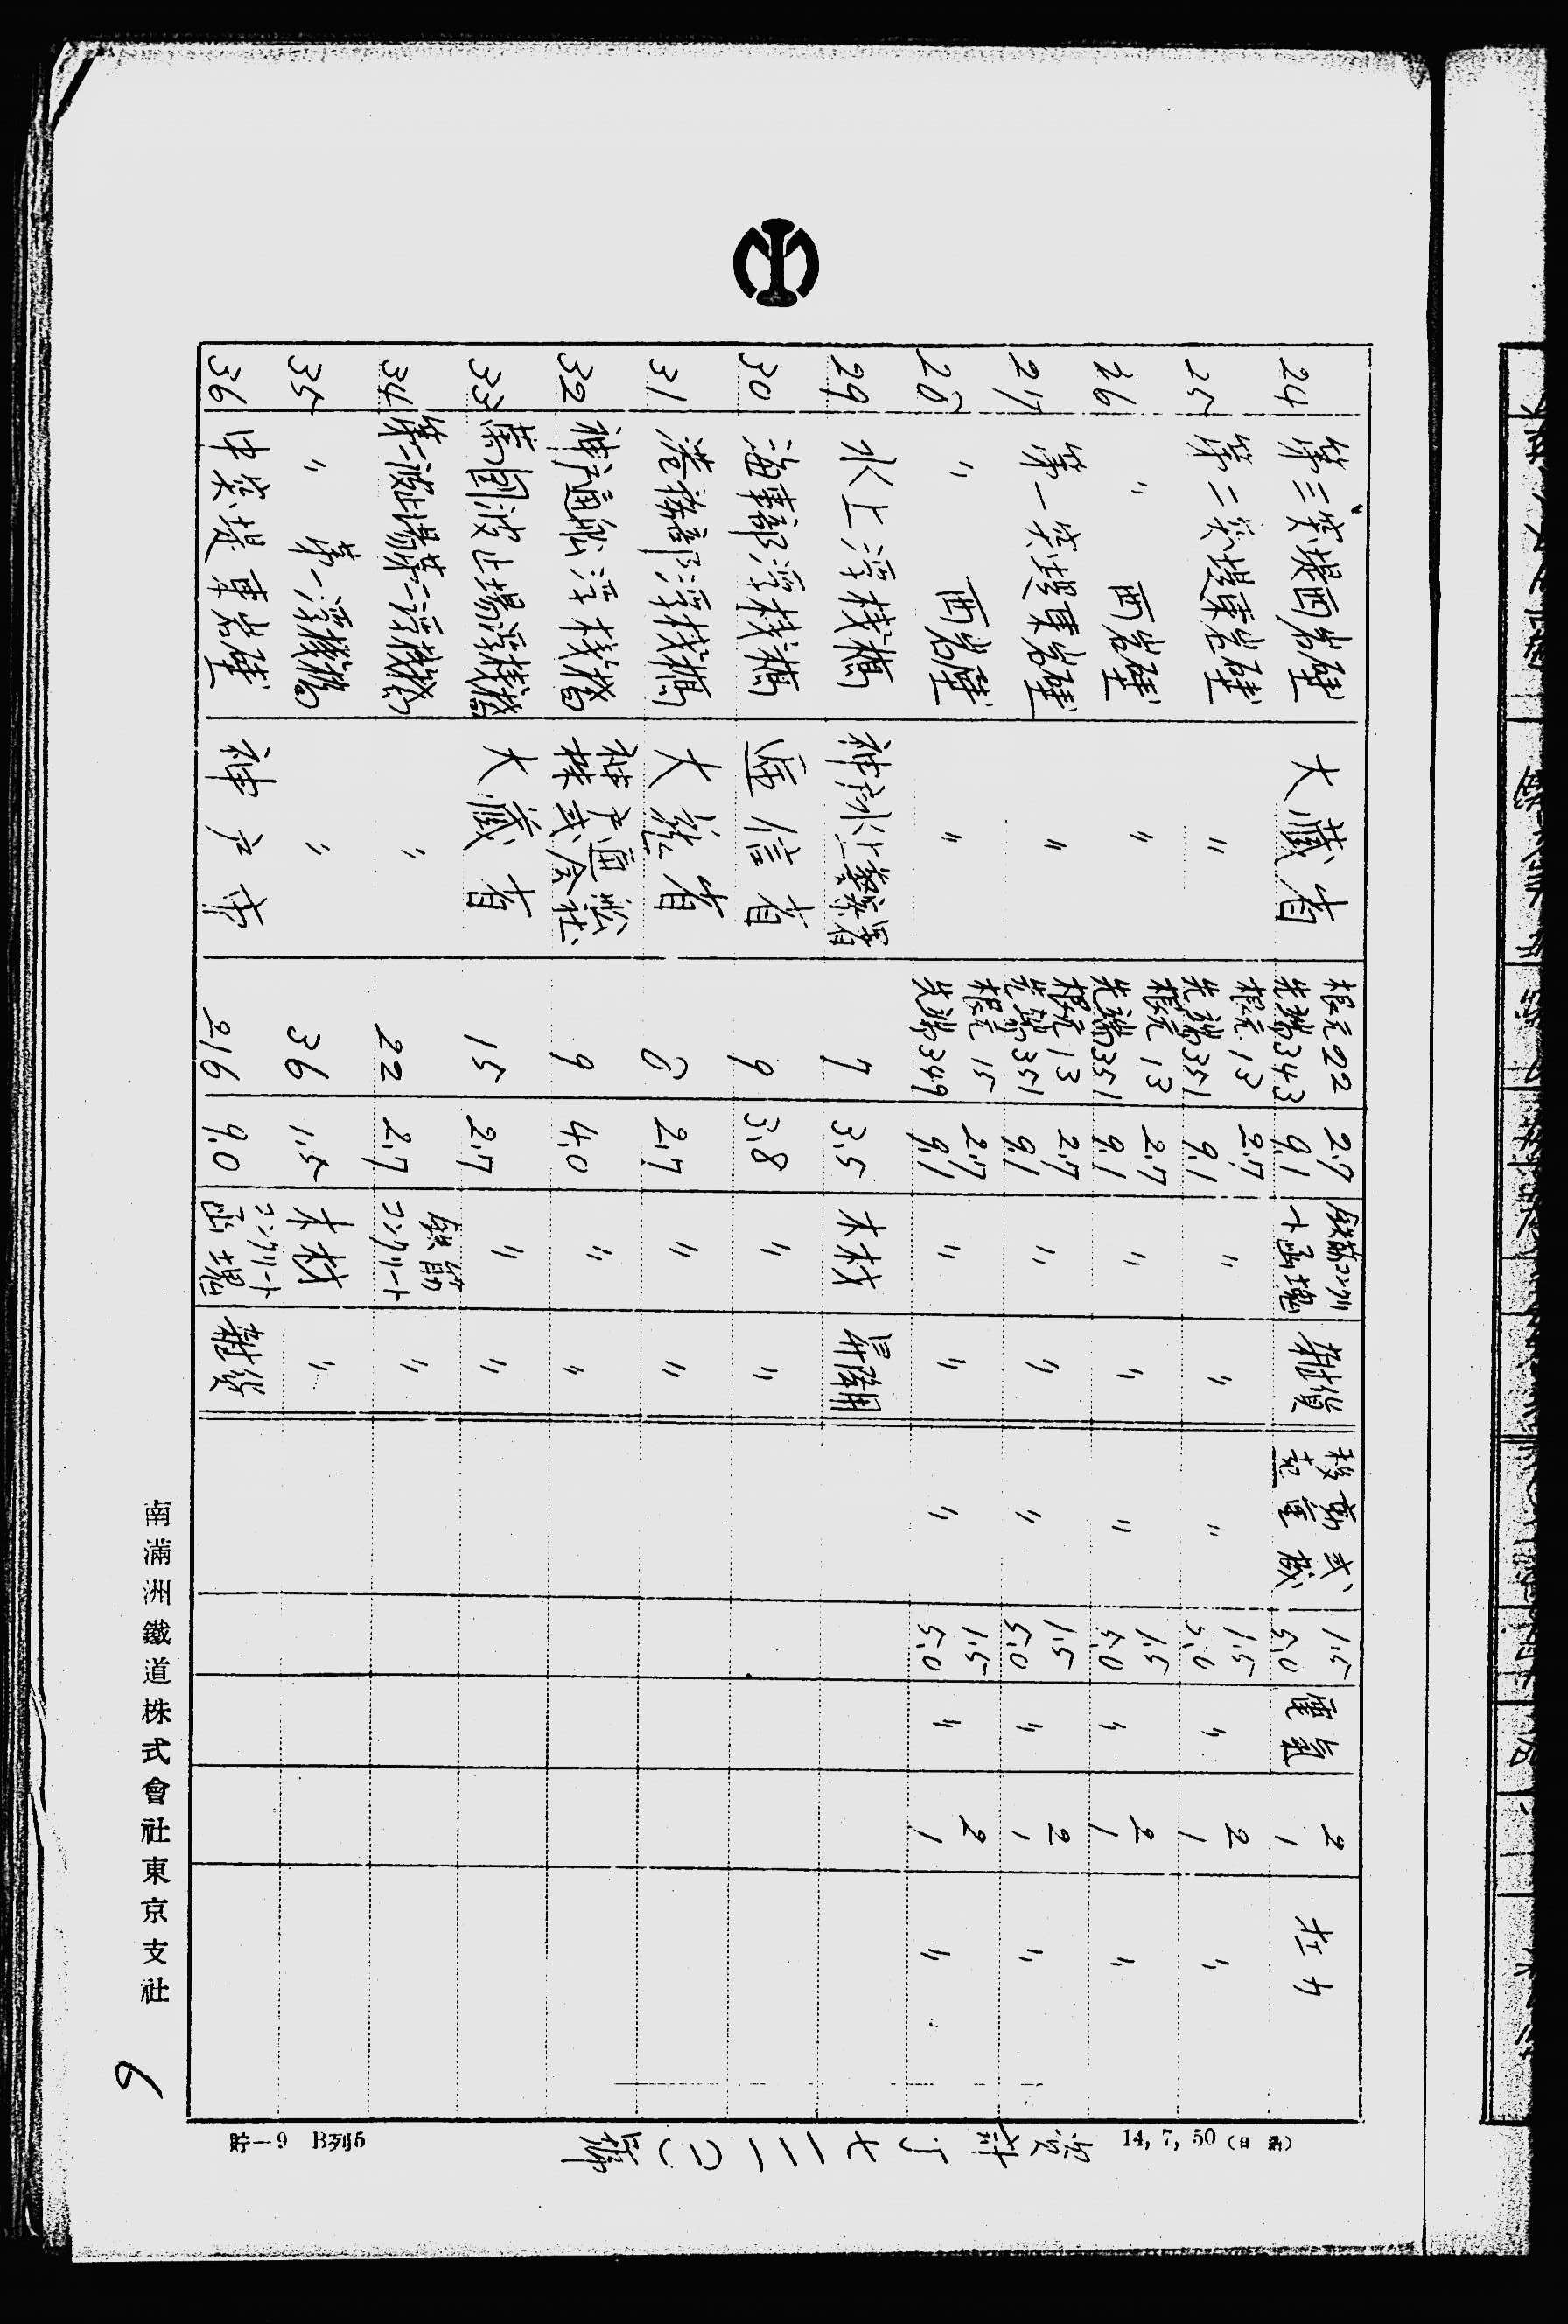 24 第三突堤西岸壁 大藏省 根元22 先端343 2.7 9.1 鉄筋コンクリート函塊 雜貨 移動式起重機 1.5 5.0 電氣 2 1
25 第二突堤東岸壁 〃 根元13 先端351 2.7 9.1 〃 〃 〃 1.5 5.0 〃 2 1 〃
26 〃 西岸壁 〃 根元13 先端351 2.7 9.1 〃 〃 〃 1.5 5.0 〃 2 1 〃
27 第一突堤東岸壁 〃 根元13 先端351 2.7 9.1 〃 〃 〃 1.5 5.0 〃 2 1 〃
28 〃 西岸壁 〃 根元15 先端349 2.7 9.1 〃 〃 〃 1.5 5.0 〃 2 1 〃
29 水上浮棧橋 神戸水上警察署 7 3.5 木材 昇降用
30 海事部浮棧橋 遞信省 9 3.8 〃 〃
31 港務部浮棧橋 大藏省 8 2.7 〃 〃
32 神戸通船浮棧橋 神戸通船株式会社 9 4.0 〃 〃
33 萬国波止場浮棧橋 大藏省 15 2.7 〃 〃
34 第一波止場第二浮棧橋 〃 22 2.7 鉄筋コンクリート 〃
35 〃 第一浮棧橋 〃 36 1.5 木材 〃
36 中突堤東岸壁 神戸市 216 9.0 コンクリート函塊 雜貨
南滿洲鐵道株式會社東京支社
6
貯—9 B列5
14, 7, 50